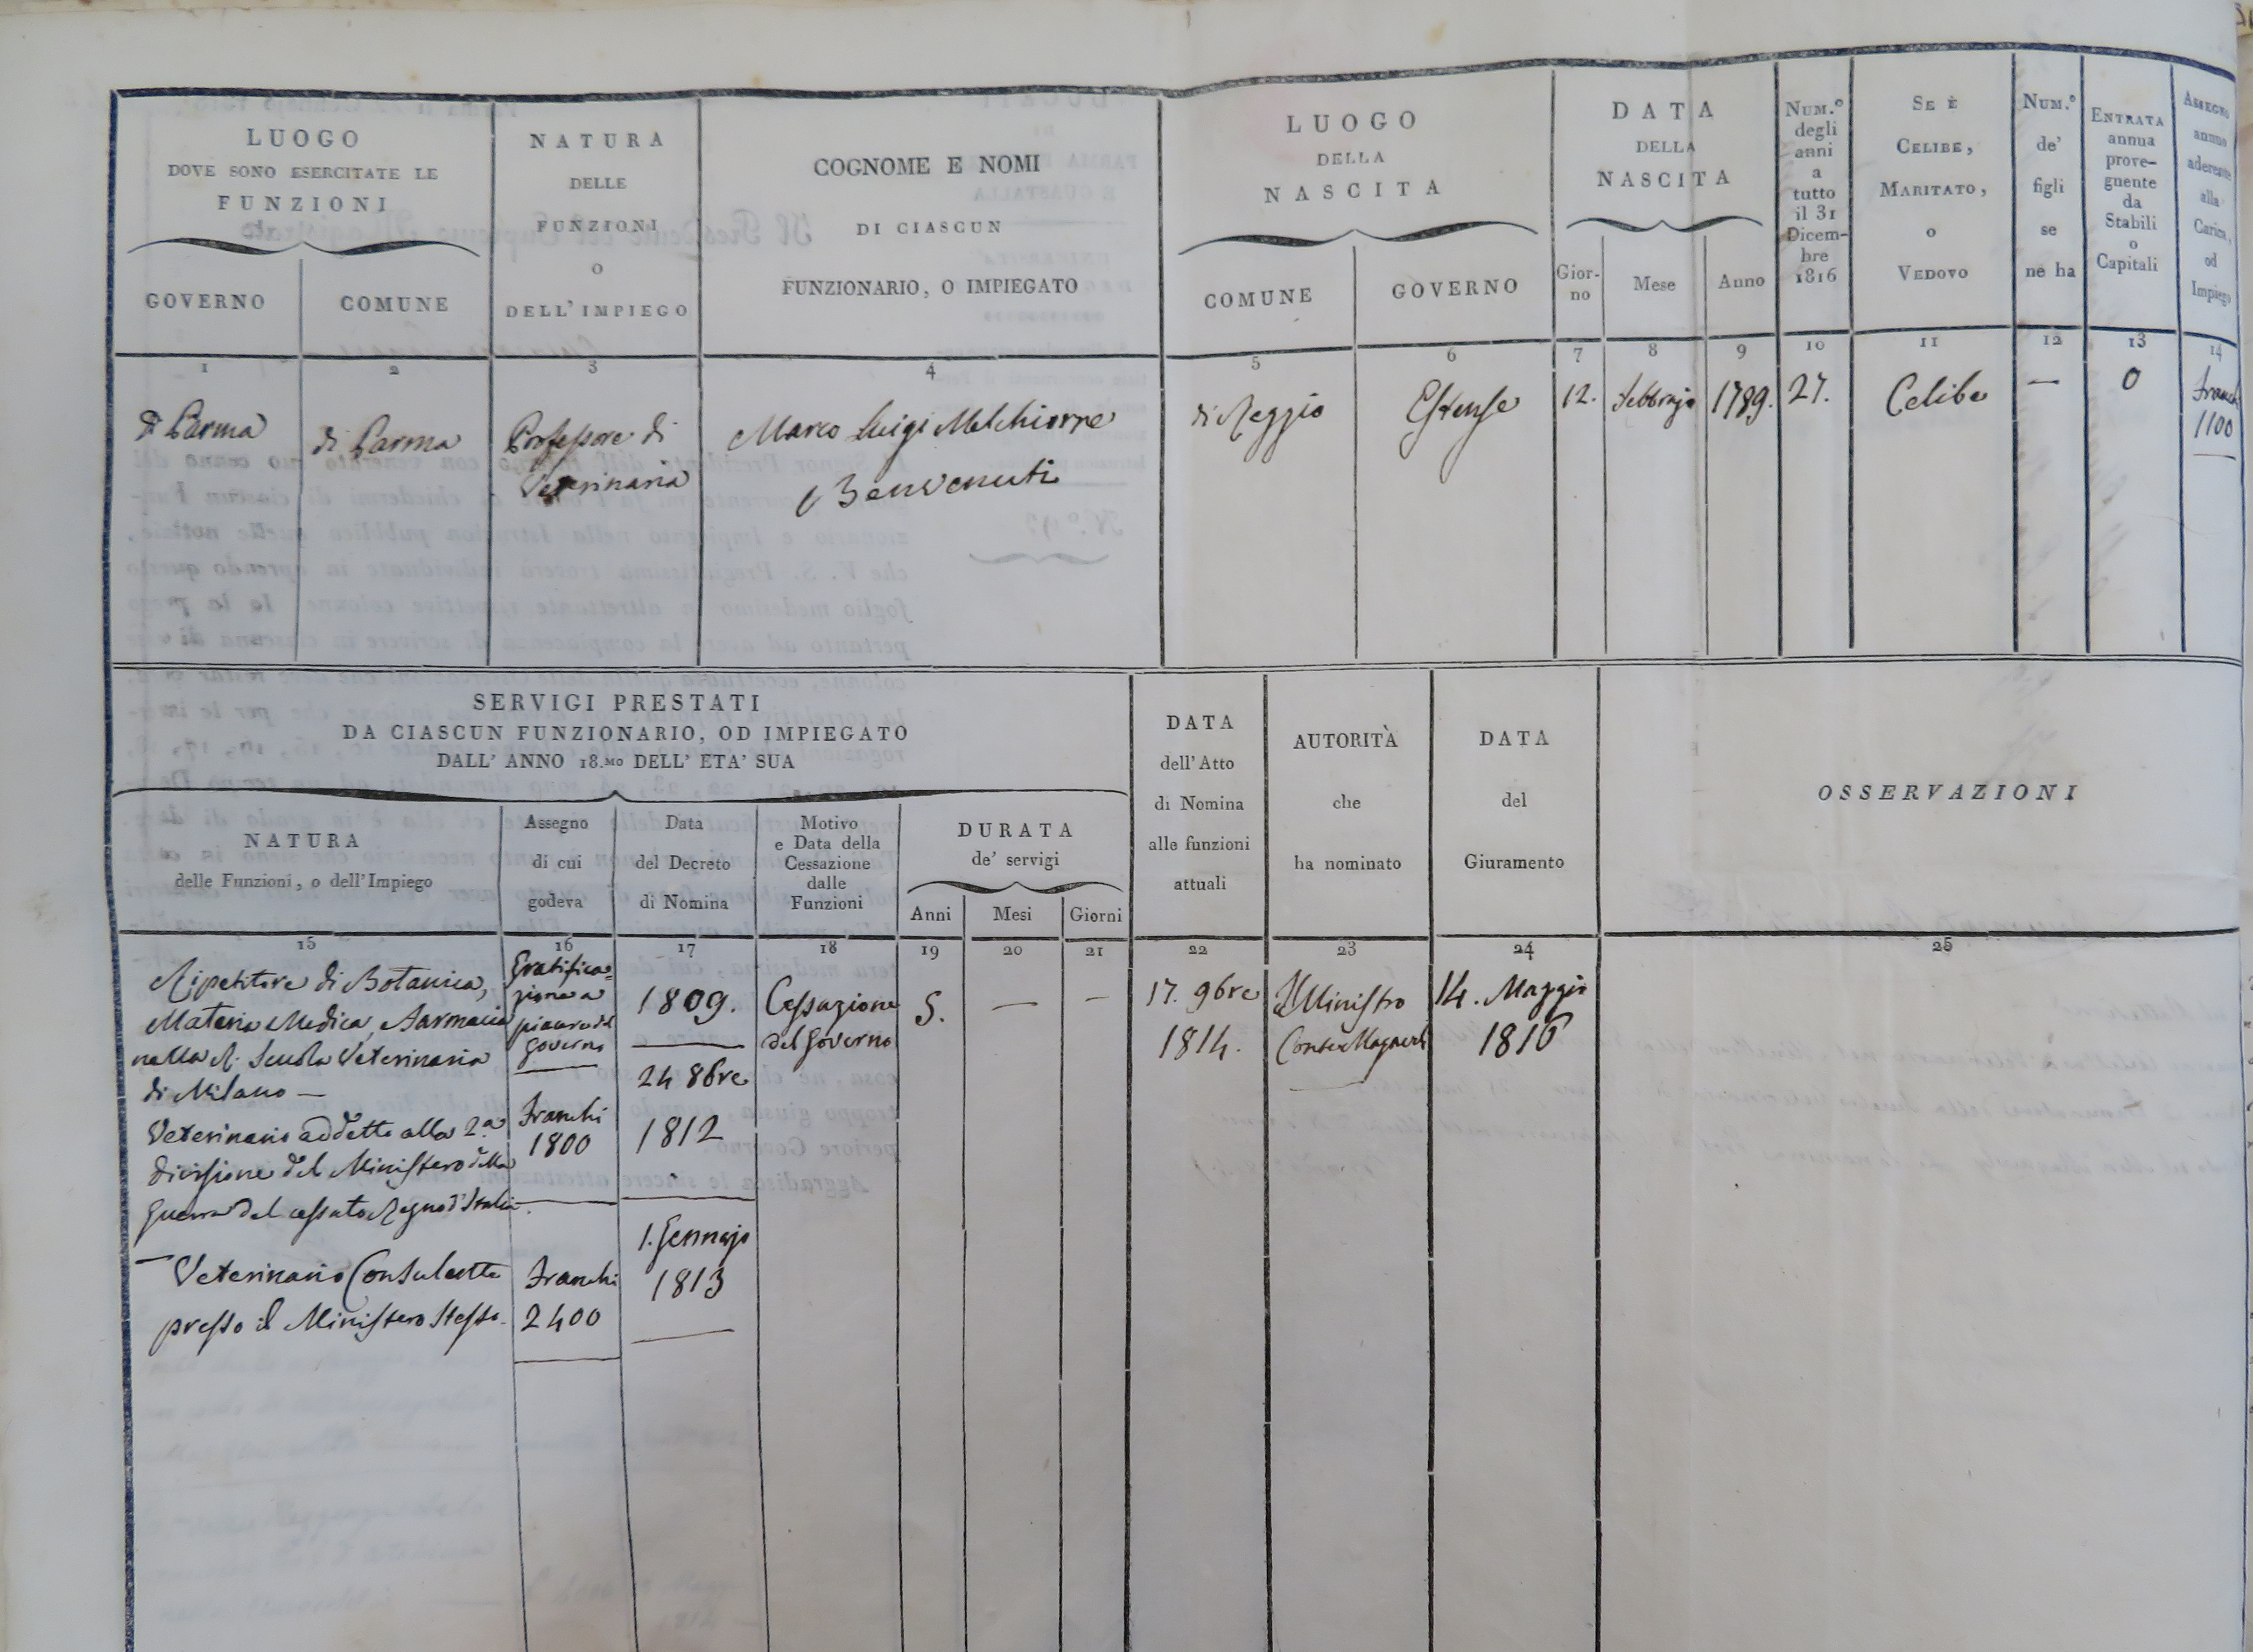 LUOGO
DOVE SONO ESERCITATE LE
FUNZIONI
GOVERNO
COMUNE
NATURA
DELLE
FUNZIONI
O
DELL' IMPIEGO
COGNOME E NOMI
DI CIASCUN
FUNZIONARIO, O IMPIEGATO
LUOGO
DELLA
NASCITA
COMUNE
GOVERNO
DATA
DELLA
NASCITA
Gior-
no
Mese
Anno
NUM.º
degli
anni
a
tutto
il 31
Dicem-
bre
1816
SE È
CELIBE,
MARITATO,
O
VEDOVO
NUM.º
de'
figli
se
ne ha
ENTRATA
annua
prove-
gnente
da
Stabili
o
Capitali
ASSEGNO
annuo
aderente
alla
Carica,
od
Impiego
1
2
3
4
5
6
7
8
9
10
11
12
13
14
di Parma
di Parma
Professore di
Veterinaria
Marco Luigi Melchiorre
Benvenuti
di Reggio
Estense
12.
Febbrajo
1789.
27.
Celibe
—
0
Franchi
1100
SERVIGI PRESTATI
DA CIASCUN FUNZIONARIO, OD IMPIEGATO
DALL' ANNO 18.MO DELL' ETA' SUA
NATURA
delle Funzioni, o dell'Impiego
Assegno
di cui
godeva
Data
del Decreto
di Nomina
Motivo
e Data della
Cessazione
dalle
Funzioni
DURATA
de' servigi
Anni
Mesi
Giorni
DATA
dell'Atto
di Nomina
alle funzioni
attuali
AUTORITÀ
che
ha nominato
DATA
del
Giuramento
OSSERVAZIONI
15
16
17
18
19
20
21
22
23
24
25
Ripetitore di Botanica,
Materia Medica, Farmacia
nella R. Scuola Veterinaria
di Milano —
Veterinario addetto alla 2.a
divisione del Ministero della
Guerra del cessato Regno d'Italia.
— Veterinario Consulente
presso il Ministero stesso.
Gratifica=
zione a
piacere del
Governo
Franchi
1800
Franchi
2400
1809.
24 8bre
1812
1. Gennajo
1813
Cessazione
del Governo
5.
—
—
17. 9bre
1814.
Il Ministro
Conte Magawli
14. Maggio
1816